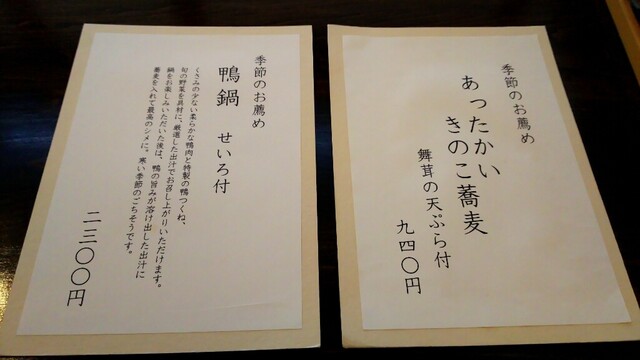 季節のお薦め
鴨鍋 せいろ付
くさみの少ない柔らかな鴨肉と特製の鴨つくね、
旬の野菜を具材に、厳選した出汁でお召し上がりいただけます。
鍋をお楽しみいただいた後は、鴨の旨みが溶け出した出汁に
蕎麦を入れて最高のシメに。寒い季節のごちそうです。
二三〇〇円
季節のお薦め
あったかい
きのこ蕎麦
舞茸の天ぷら付
九四〇円